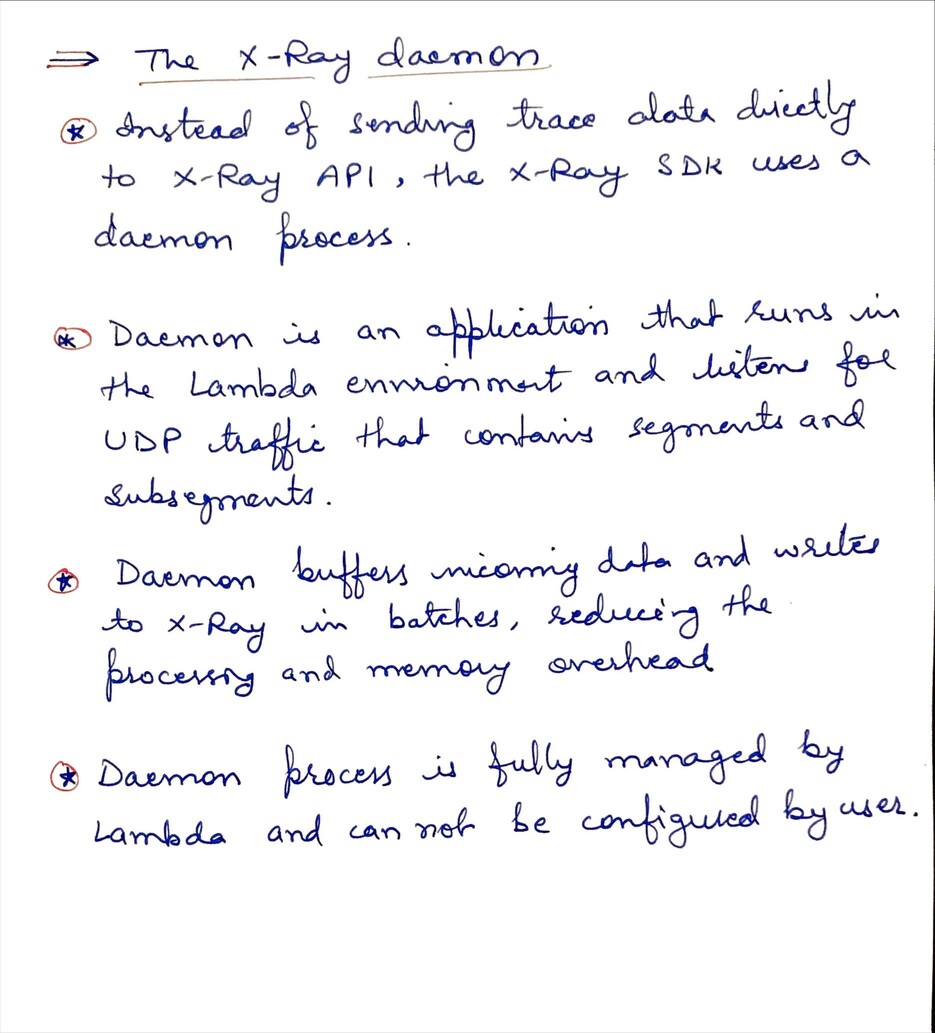 ⇒ The X-Ray daemon
⍟ Instead of sending trace data directly
to X-Ray API, the X-Ray SDK uses a
daemon process.
⍟ Daemon is an application that runs in
the Lambda environment and listens for
UDP traffic that contains segments and
subsegments.
⍟ Daemon buffers incoming data and writes
to X-Ray in batches, reducing the
processing and memory overhead
⍟ Daemon process is fully managed by
Lambda and can not be configured by user.